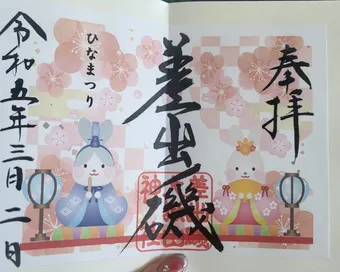 奉拝
差出磯
ひなまつり
令和五年三月二日